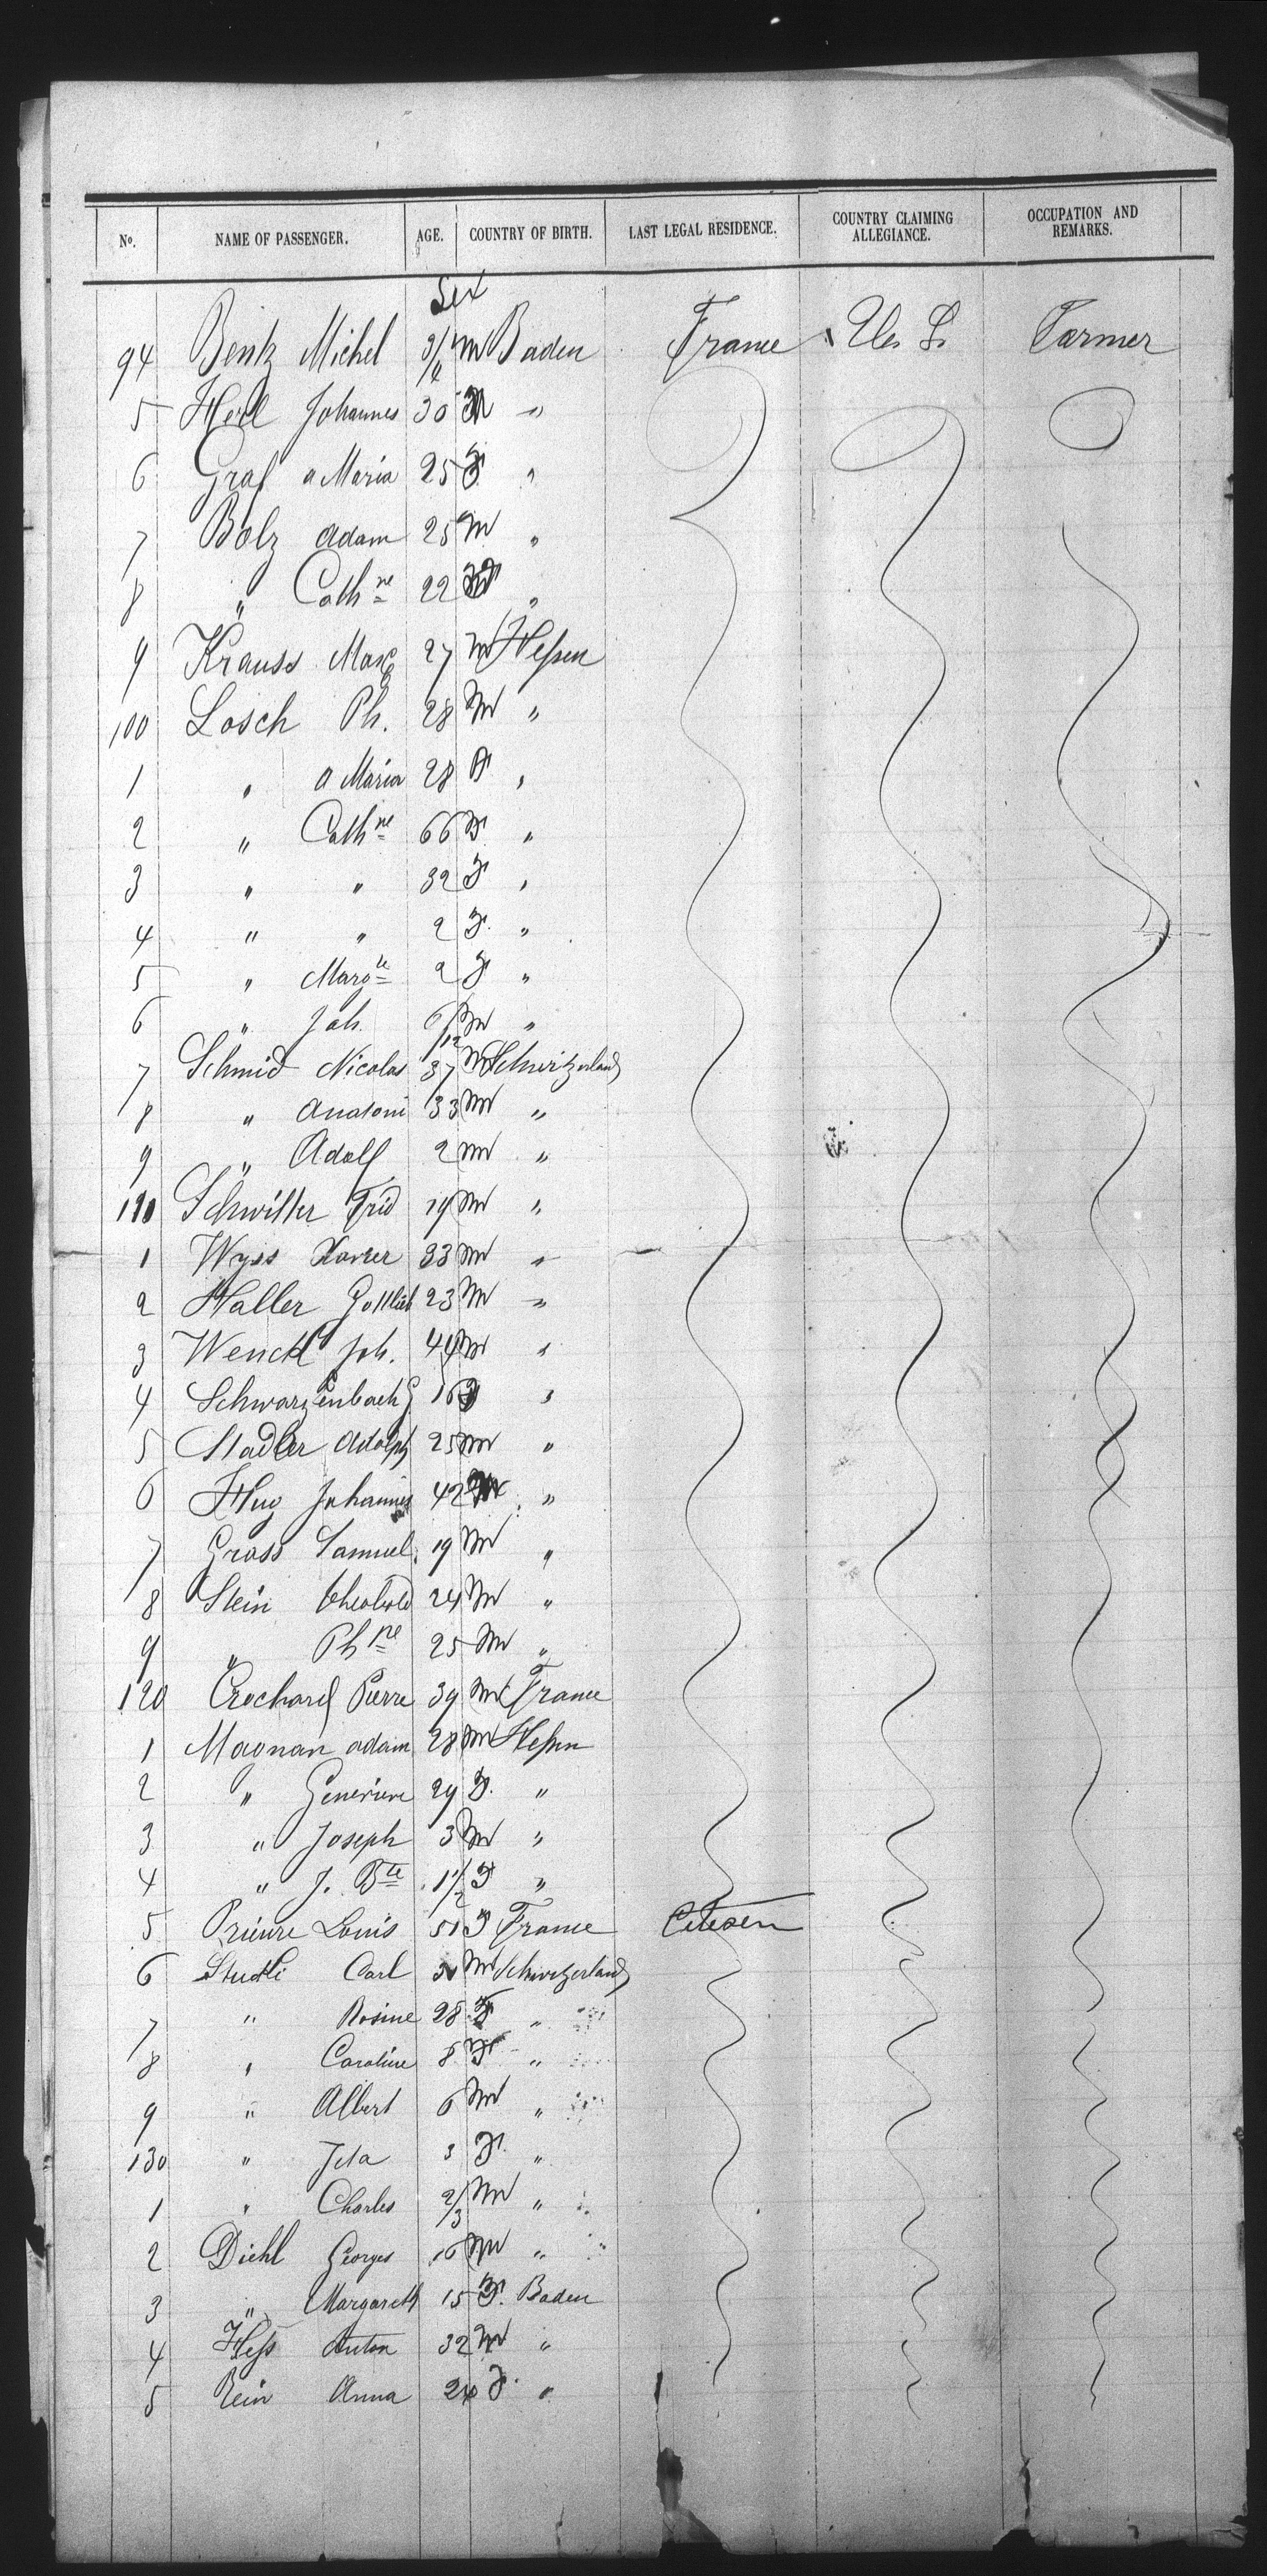 No. NAME OF PASSENGER. AGE. COUNTRY OF BIRTH. LAST LEGAL RESIDENCE. COUNTRY CLAIMING ALLEGIANCE. OCCUPATION AND REMARKS.
Sex
94 Bentz Michel m Baden France U. S. Farmer
5 Herl Johannes 30 M "
6 Graf a Maria 25 F "
7 Bolz Adam 25 M "
8 " Cathne 22 "
9 Krauss Max 27 M Hessen
100 Losch Ph. 28 M "
1 " a Maria 28 F "
2 " Cathne 66 F "
3 " " 32 F "
4 " " 2 F "
5 " Margte 2 F "
6 " Joh. 6/12 M "
7 Schmid Nicolas 37 M Schwitzerland
8 " 33 M "
9 " Adolf 2 M "
110 Schwitter Frid 19 M "
1 Wyss Xavier 33 M "
2 Haller Gottlieb 23 M "
3 Wenckl Joh. 44 M "
4 Schwarzenbach J 16 "
5 Stadler Adolph 25 M "
6 Hug Johannes 42 M "
7 Grass Samuel 19 M "
8 Stein theobold 24 M "
9 " Phne 25 M "
120 Crochard Pierre 39 M France
1 Magnan adam 28 M Hessen
2 " Genevieve 29 F. "
3 " Joseph 3 M "
4 " J. Bte 1 1/2 F "
5 Prieure Louis 51 F France Citesen
6 Studli Carl M Schwitzerland
7 " Rosine 28 F "
8 " Caroline 8 F "
9 " Albert 6 M "
130 " Ida 3 F. "
1 " Charles 2/3 M "
2 Diehl Georges 16 M "
3 " Margareth 15 F. Baden
4 Hess Anton 32 M "
5 Rein Anna 24 F. "